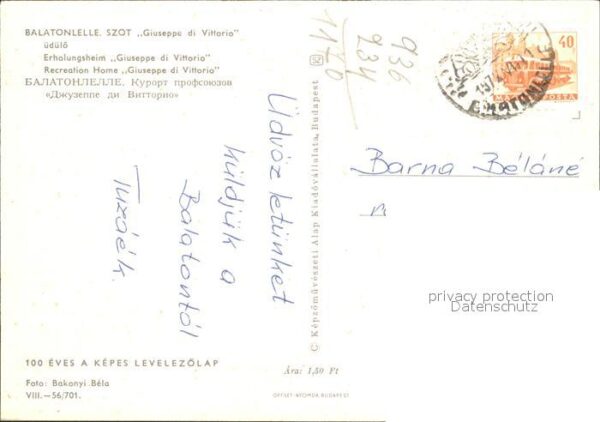 BALATONLELLE. SZOT „Giuseppe di Vittorio"
üdülő
Erholungsheim „Giuseppe di Vittorio"
Recreation Home „Giuseppe di Vittorio"
БАЛАТОНЛЕЛЛЕ. Курорт профсоюзов
«Джузеппе ди Витторио»
Üdvözletünket
küldjük a
Balatontól
Tuzáék.
100 ÉVES A KÉPES LEVELEZŐLAP
Foto: Bakonyi Béla
VIII.—56/701.
© Képzőművészeti Alap Kiadóvállalata, Budapest
Ára: 1,50 Ft
OFFSET NYOMDA BUDAPEST
1170
234
936
40
MAGYAR POSTA
BALATONLELLE
Barna Béláné
privacy protection
Datenschutz